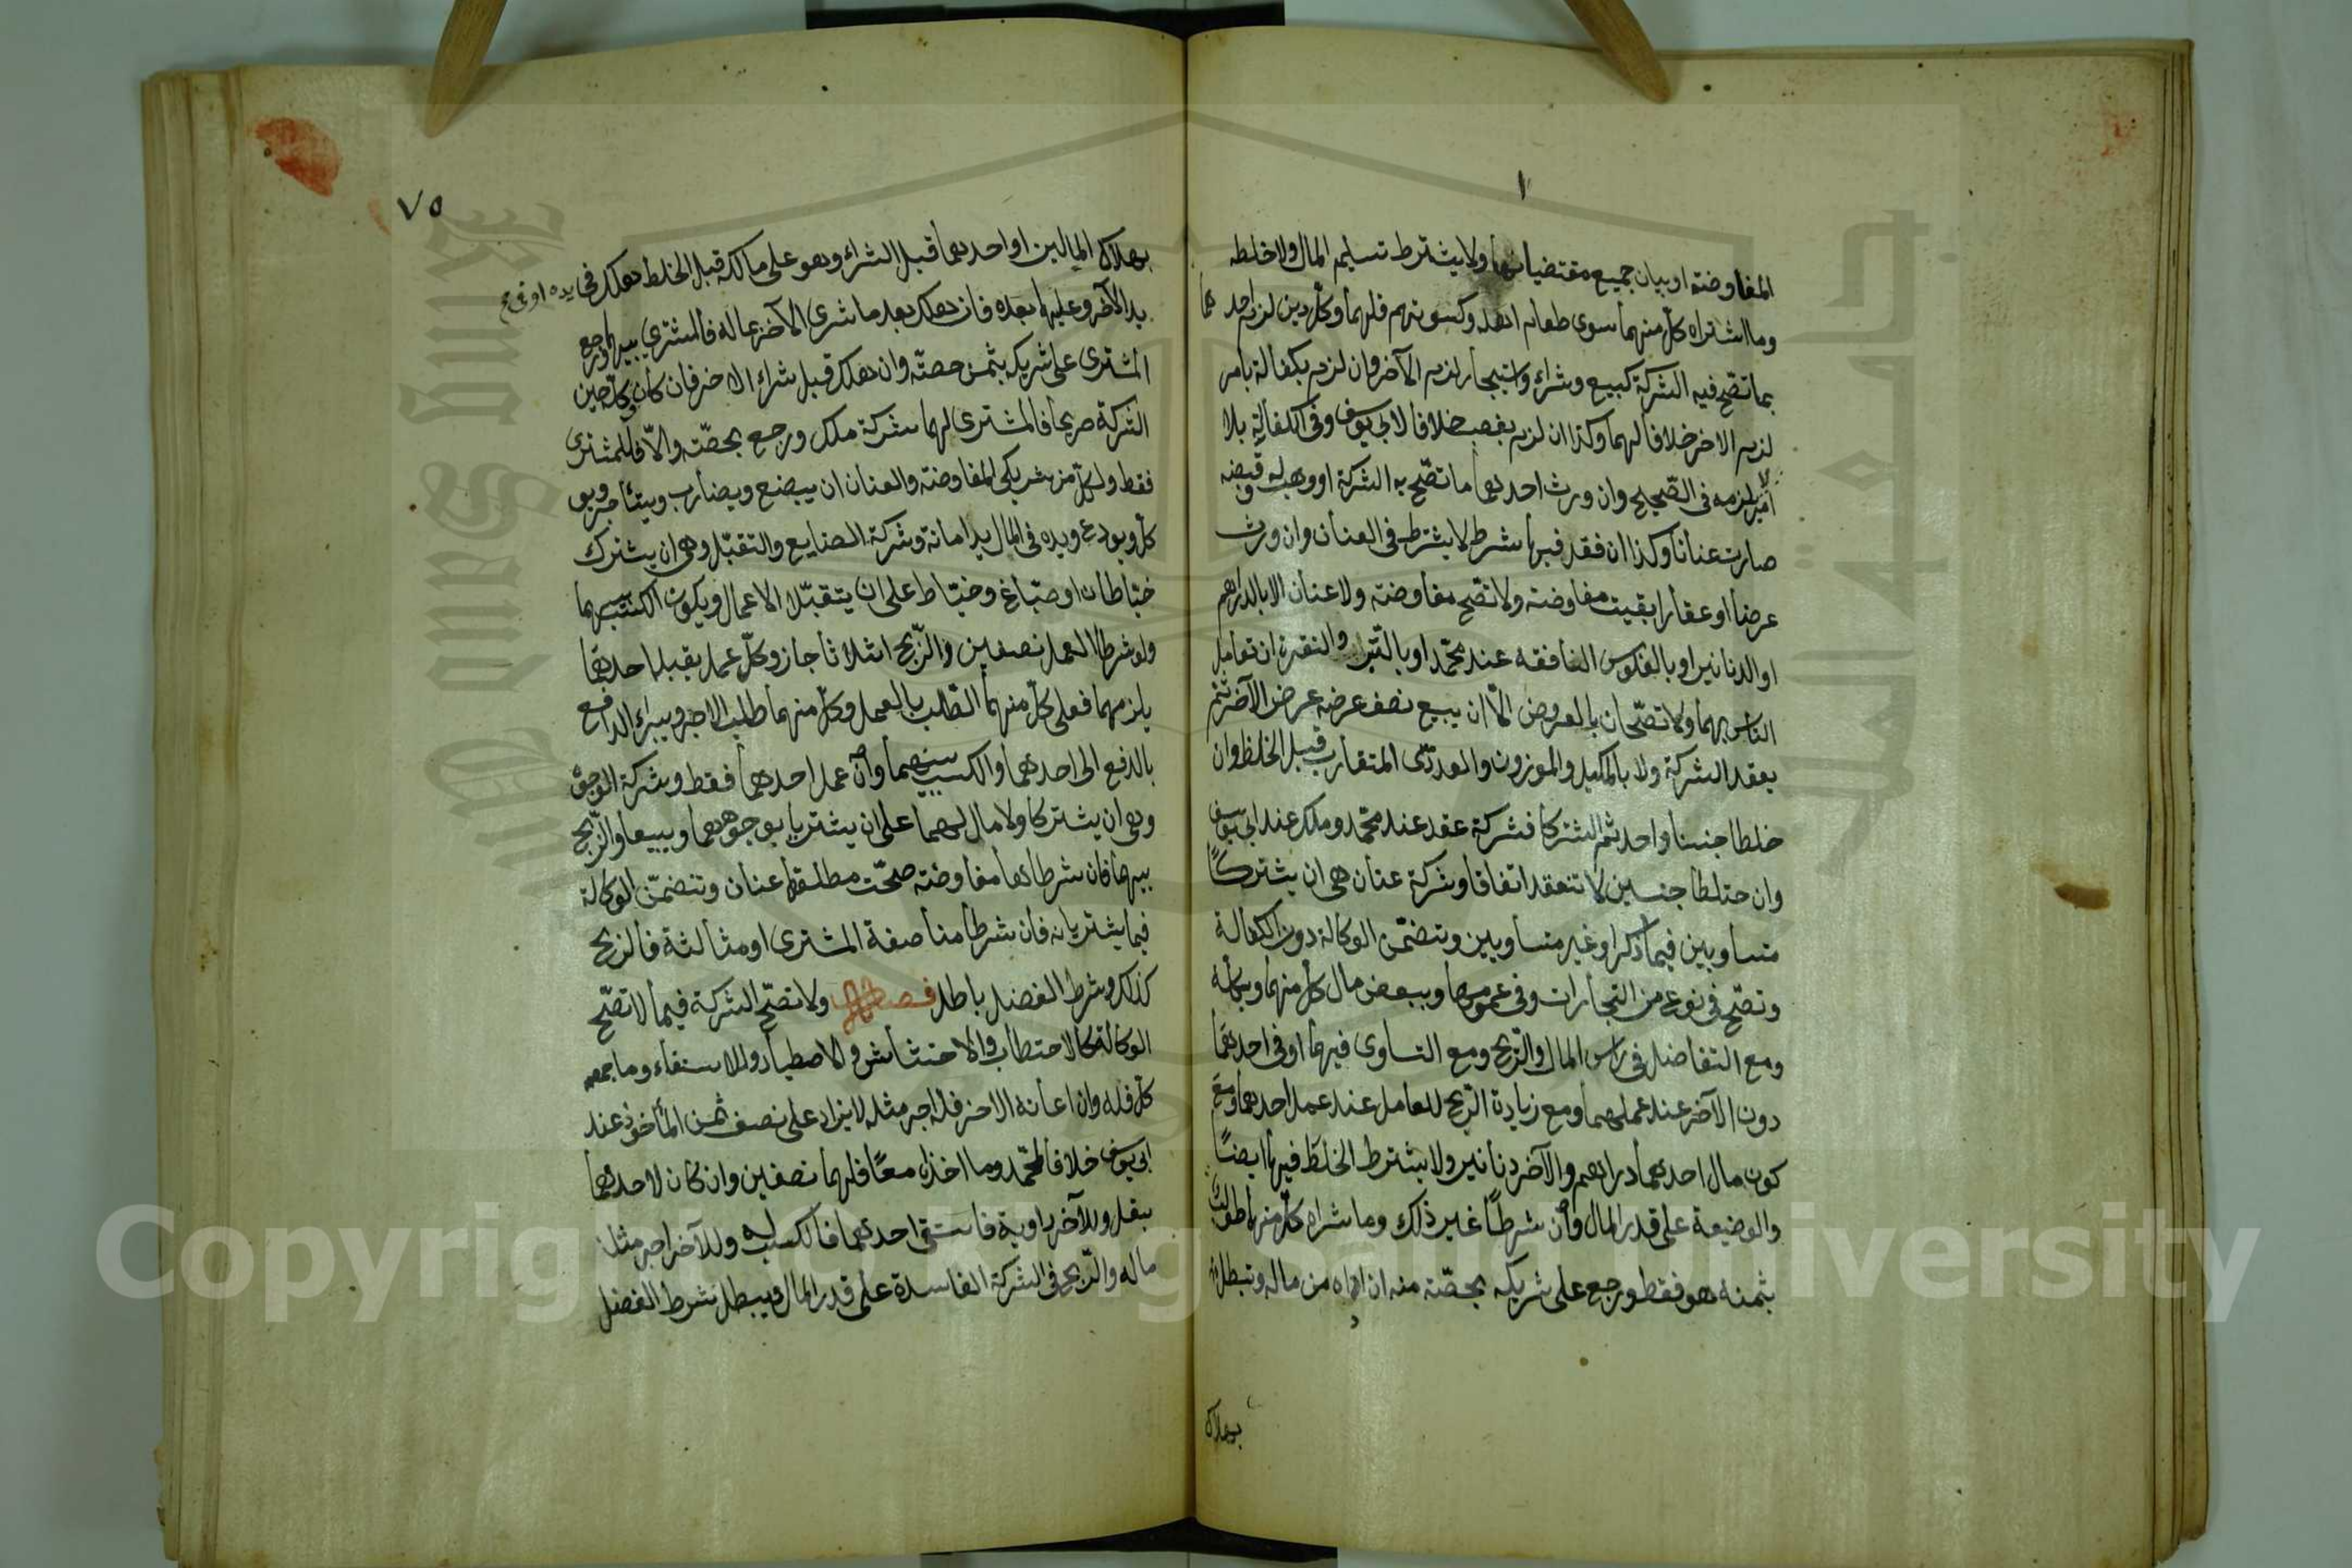 المفاوضة او بيان جميع مقتضياتها ولا يشترط تسليم المال ولا خلطه
وما اشتراه كل منهما سوى طعام اهله وكسوتهم فلهما وكل دين لزم احدهما
بما تصح فيه الشركة كبيع وشراء واستيجار لزم الآخر وان لزم بكفالة بامر
لزم الاخر خلافا لهما وكذا ان لزم بغصب خلافا لابى يوسف وفى الكفالة بلا
امر لا يلزمه فى الصحيح وان ورث احدهما ما تصح به الشركة او وهب له وقبضه
صارت عنانا وكذا ان فقد فيها شرط لا يشترط فى العنان وان ورث
عرضا او عقارا بقيت مفاوضة ولا تصح مفاوضة ولا عنان الا بالدراهم
او الدنانير او بالفلوس النافقة عند محمد او بالتبر والنقرة ان تعامل
الناس بهما ولا تصحان بالعروض الا ان يبيع نصف عرضه عرض الآخر ثم
يعقد الشركة ولا بالمكيل والموزون والعددى المتقارب قبل الخلط وان
خلطا جنسا واحد ثم اشتركا فشركة عقد عند محمد وملك عند ابى يوسف
وان خلطا جنسين لا تنعقد اتفاقا وشركة عنان هى ان يشتركا
متساويين فيما ذكر او غير متساويين وتتضمن الوكالة دون الكفالة
وتصح فى نوع من التجارات وفى عمومها وببعض مال كل منهما وبكله
ومع التفاضل فى راس المال والربح ومع التساوى فيهما او فى احدهما
دون الآخر عند عملهما ومع زيادة الربح للعامل عند عمل احدهما ومع
كون مال احدهما دراهم والآخر دنانير ولا يشترط الخلط فيها ايضا
والوضيعة على قدر المال وان شرطا غير ذلك وما شراه كل منهما طولب
بثمنه هو فقط ورجع على شريكه بحصته منه ان اداه من ماله وتبطل
بهلاك
٧٥
بهلاك المالين او احدهما قبل الشراء وهو على مالكه قبل الخلط هلك فى يده او فى
يد الآخر وعليهما بعده فان هلك بعد ما شرى الآخر بماله فالمشترى بينهما ورجع
المشترى على شريكه بثمن حصته وان هلك قبل شراء الاخر فان كان وكله حين
الشركة صريحا فالمشترى لهما شركة ملك ورجع بحصته والا فللمشترى
فقط ولكل من شريكى المفاوضة والعنان ان يبضع ويضارب ويستأجر ويو
كل ويودع ويده فى المال يد امانة وشركة الصنايع والتقبل وهى ان يشترك
خياطان او صباغ وخياط على ان يتقبلا الاعمال ويكون الكسب بينهما
ولو شرطا العمل نصفين والربح اثلاثا جاز وكل عمل يقبله احدهما
يلزمهما فعلى كل منهما الطلب بالعمل وكل منهما طلب الاجر ويبراء الدافع
بالدفع الى احدهما والكسب بينهما وان عمل احدهما فقط وشركة الوجوه
وهى ان يشتركا ولا مال لهما على ان يشتريا بوجوههما ويبيعا والربح
بينهما فان شرطاها مفاوضة صحت ومطلقها عنان وتتضمن الوكالة
فيما يشتريانه فان شرطا مناصفة المشترى او مثالثة فالربح
كذلك وشرط الفضل باطل فصل ولا تصح الشركة فيما لا تصح
الوكالة كالاحتطاب والاحتشاش والاصطياد والاستقاء وما جمعه
كل فله وان اعانه الاخر فله اجر مثله لا يزاد على نصف ثمن المأخوذ عند
ابى يوسف خلافا لمحمد وما اخذاه معا فلهما نصفين وان كان لاحدهما
بغل وللآخر راوية فاستقى احدهما فالكسب له وللآخر اجر مثل
ماله والربح فى الشركة الفاسدة على قدر المال ويبطل شرط الفضل
Copyright © King Saud University